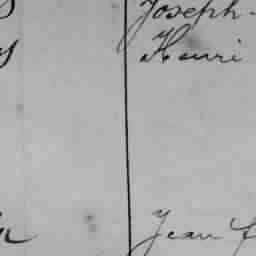 Joseph-
Henri
Jean